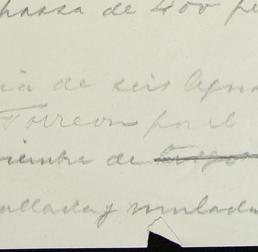 passa de 400 pe
ia de seis
Torreon por el
iembre de
allada y mulada